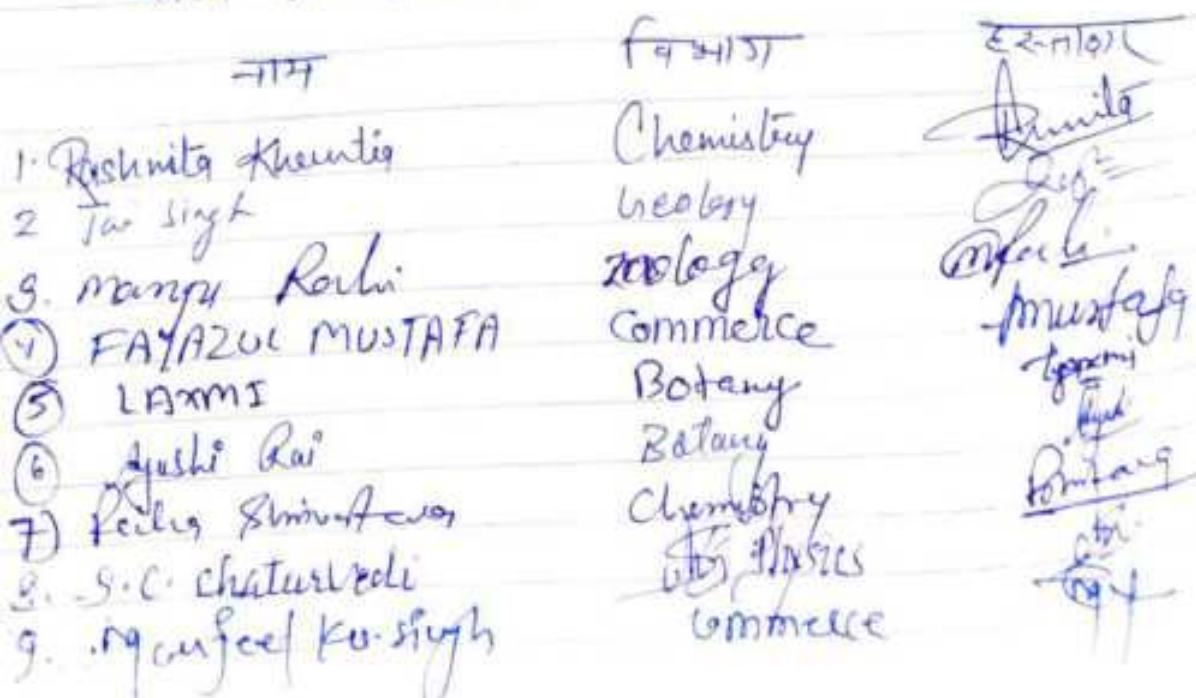 नाम विभाग हस्ताक्षर
1. Rashmita Khuntia Chemistry
2 Jai Singh Geology
3. Manju Rashi zoology
4 FAYAZUL MUSTAFA Commerce Mustafa
5 LAXMI Botany Laxmi
6 Ayushi Rai Botany
7) Shrivastava Chemistry
8. S.C. Chaturvedi Physics
9. Ku. Singh Commerce